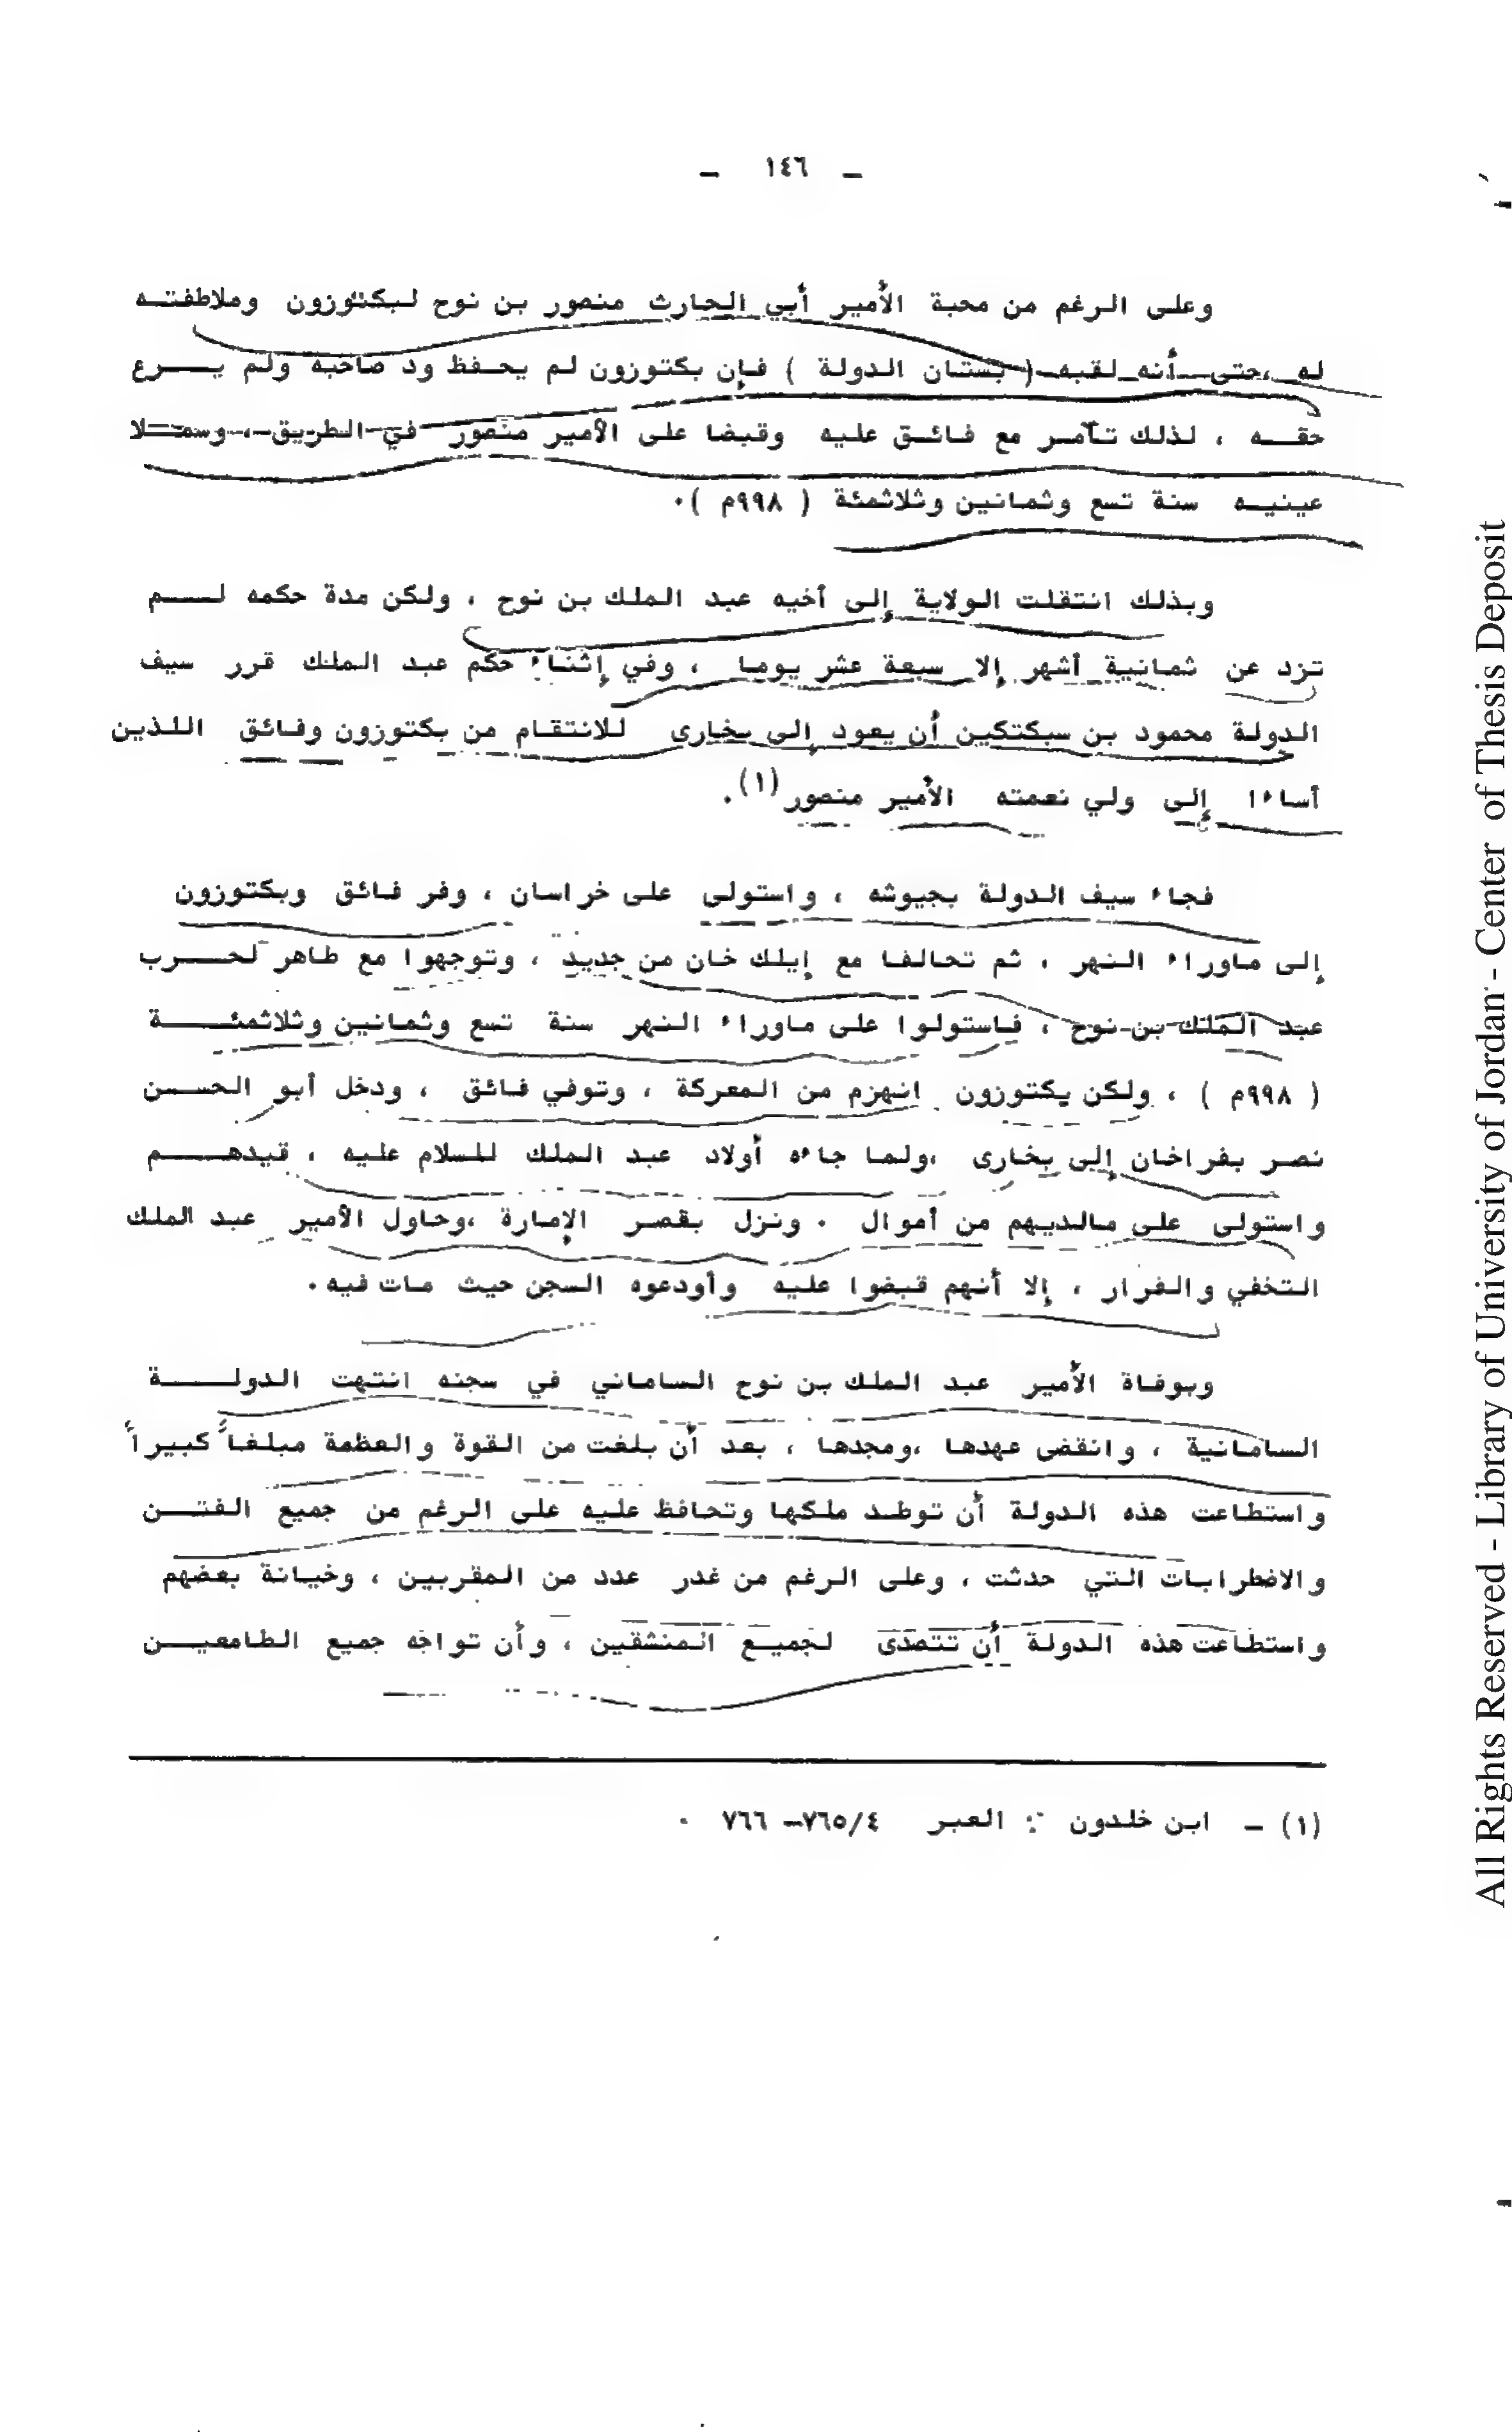 - ١٤٦ -
وعلى الرغم من محبة الأمير أبي الحارث منصور بن نوح لبكتوزون وملاطفته
له ،حتى أنه لقبه ( بستان الدولة ) فإن بكتوزون لم يحفظ ود صاحبه ولم يرع
حقه ، لذلك تآمر مع فائق عليه وقبضا على الأمير منصور في الطريق ، وسملا
عينيه سنة تسع وثمانين وثلاثمئة ( ٩٩٨م ).
وبذلك انتقلت الولاية إلى أخيه عبد الملك بن نوح ، ولكن مدة حكمه لم
تزد عن ثمانية أشهر إلا سبعة عشر يوما ، وفي إثناء حكم عبد الملك قرر سيف
الدولة محمود بن سبكتكين أن يعود إلى بخارى للانتقام من بكتوزون وفائق اللذين
أساءا إلى ولي نعمته الأمير منصور (١).
فجاء سيف الدولة بجيوشه ، واستولى على خراسان ، وفر فائق وبكتوزون
إلى ماوراء النهر ، ثم تحالفا مع إيلك خان من جديد ، وتوجهوا مع طاهر لحرب
عبد الملك بن نوح ، فاستولوا على ماوراء النهر سنة تسع وثمانين وثلاثمئة
( ٩٩٨م ) ، ولكن يكتوزون انهزم من المعركة ، وتوفي فائق ، ودخل أبو الحسن
نصر بفراخان إلى بخارى ،ولما جاءه أولاد عبد الملك للسلام عليه ، قيدهم
واستولى على مالديهم من أموال . ونزل بقصر الإمارة ،وحاول الأمير عبد الملك
التخفي والفرار ، إلا أنهم قبضوا عليه وأودعوه السجن حيث مات فيه .
وبوفاة الأمير عبد الملك بن نوح الساماني في سجنه انتهت الدولة
السامانية ، وانقضى عهدها ،ومجدها ، بعد أن بلغت من القوة والعظمة مبلغاً كبيراً
واستطاعت هذه الدولة أن توطد ملكها وتحافظ عليه على الرغم من جميع الفتن
والاضطرابات التي حدثت ، وعلى الرغم من غدر عدد من المقربين ، وخيانة بعضهم
واستطاعت هذه الدولة أن تتصدى لجميع المنشقين ، وأن تواجه جميع الطامعين
(١) - ابن خلدون : العبر ٧٦٥/٤- ٧٦٦ .
All Rights Reserved - Library of University of Jordan - Center of Thesis Deposit